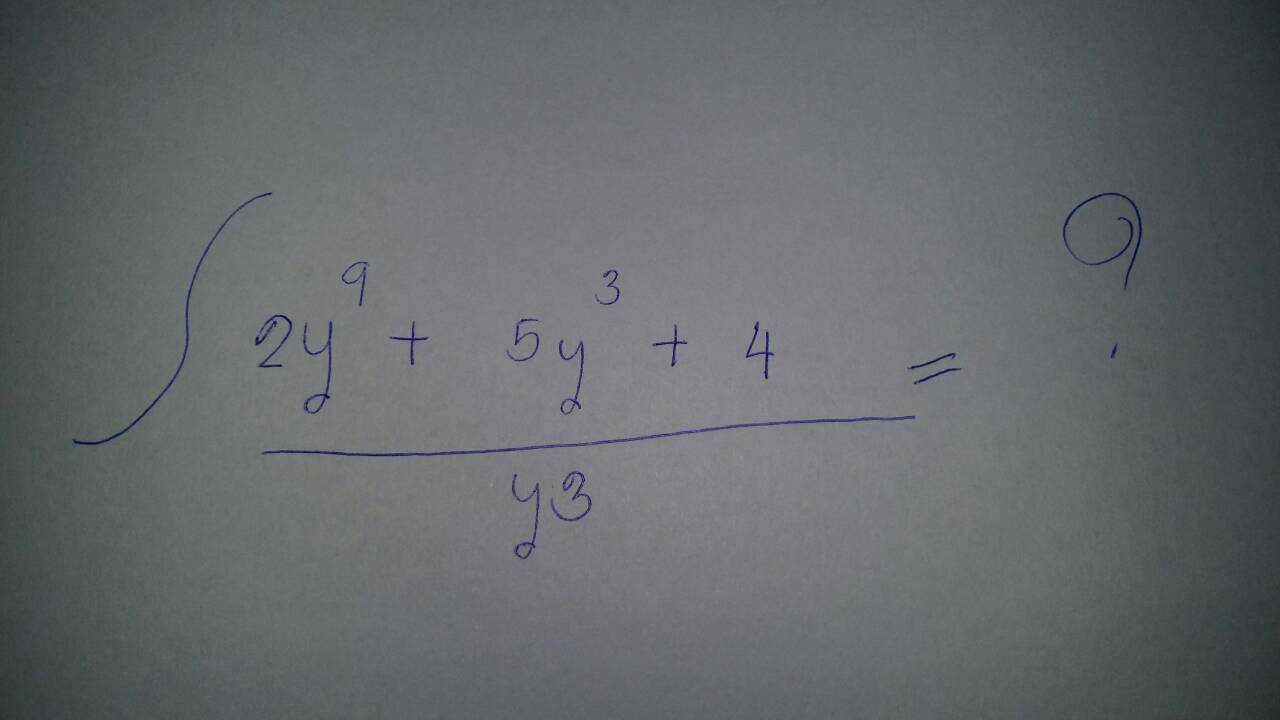 ∫ 2y⁹ + 5y³ + 4 = ?
y3